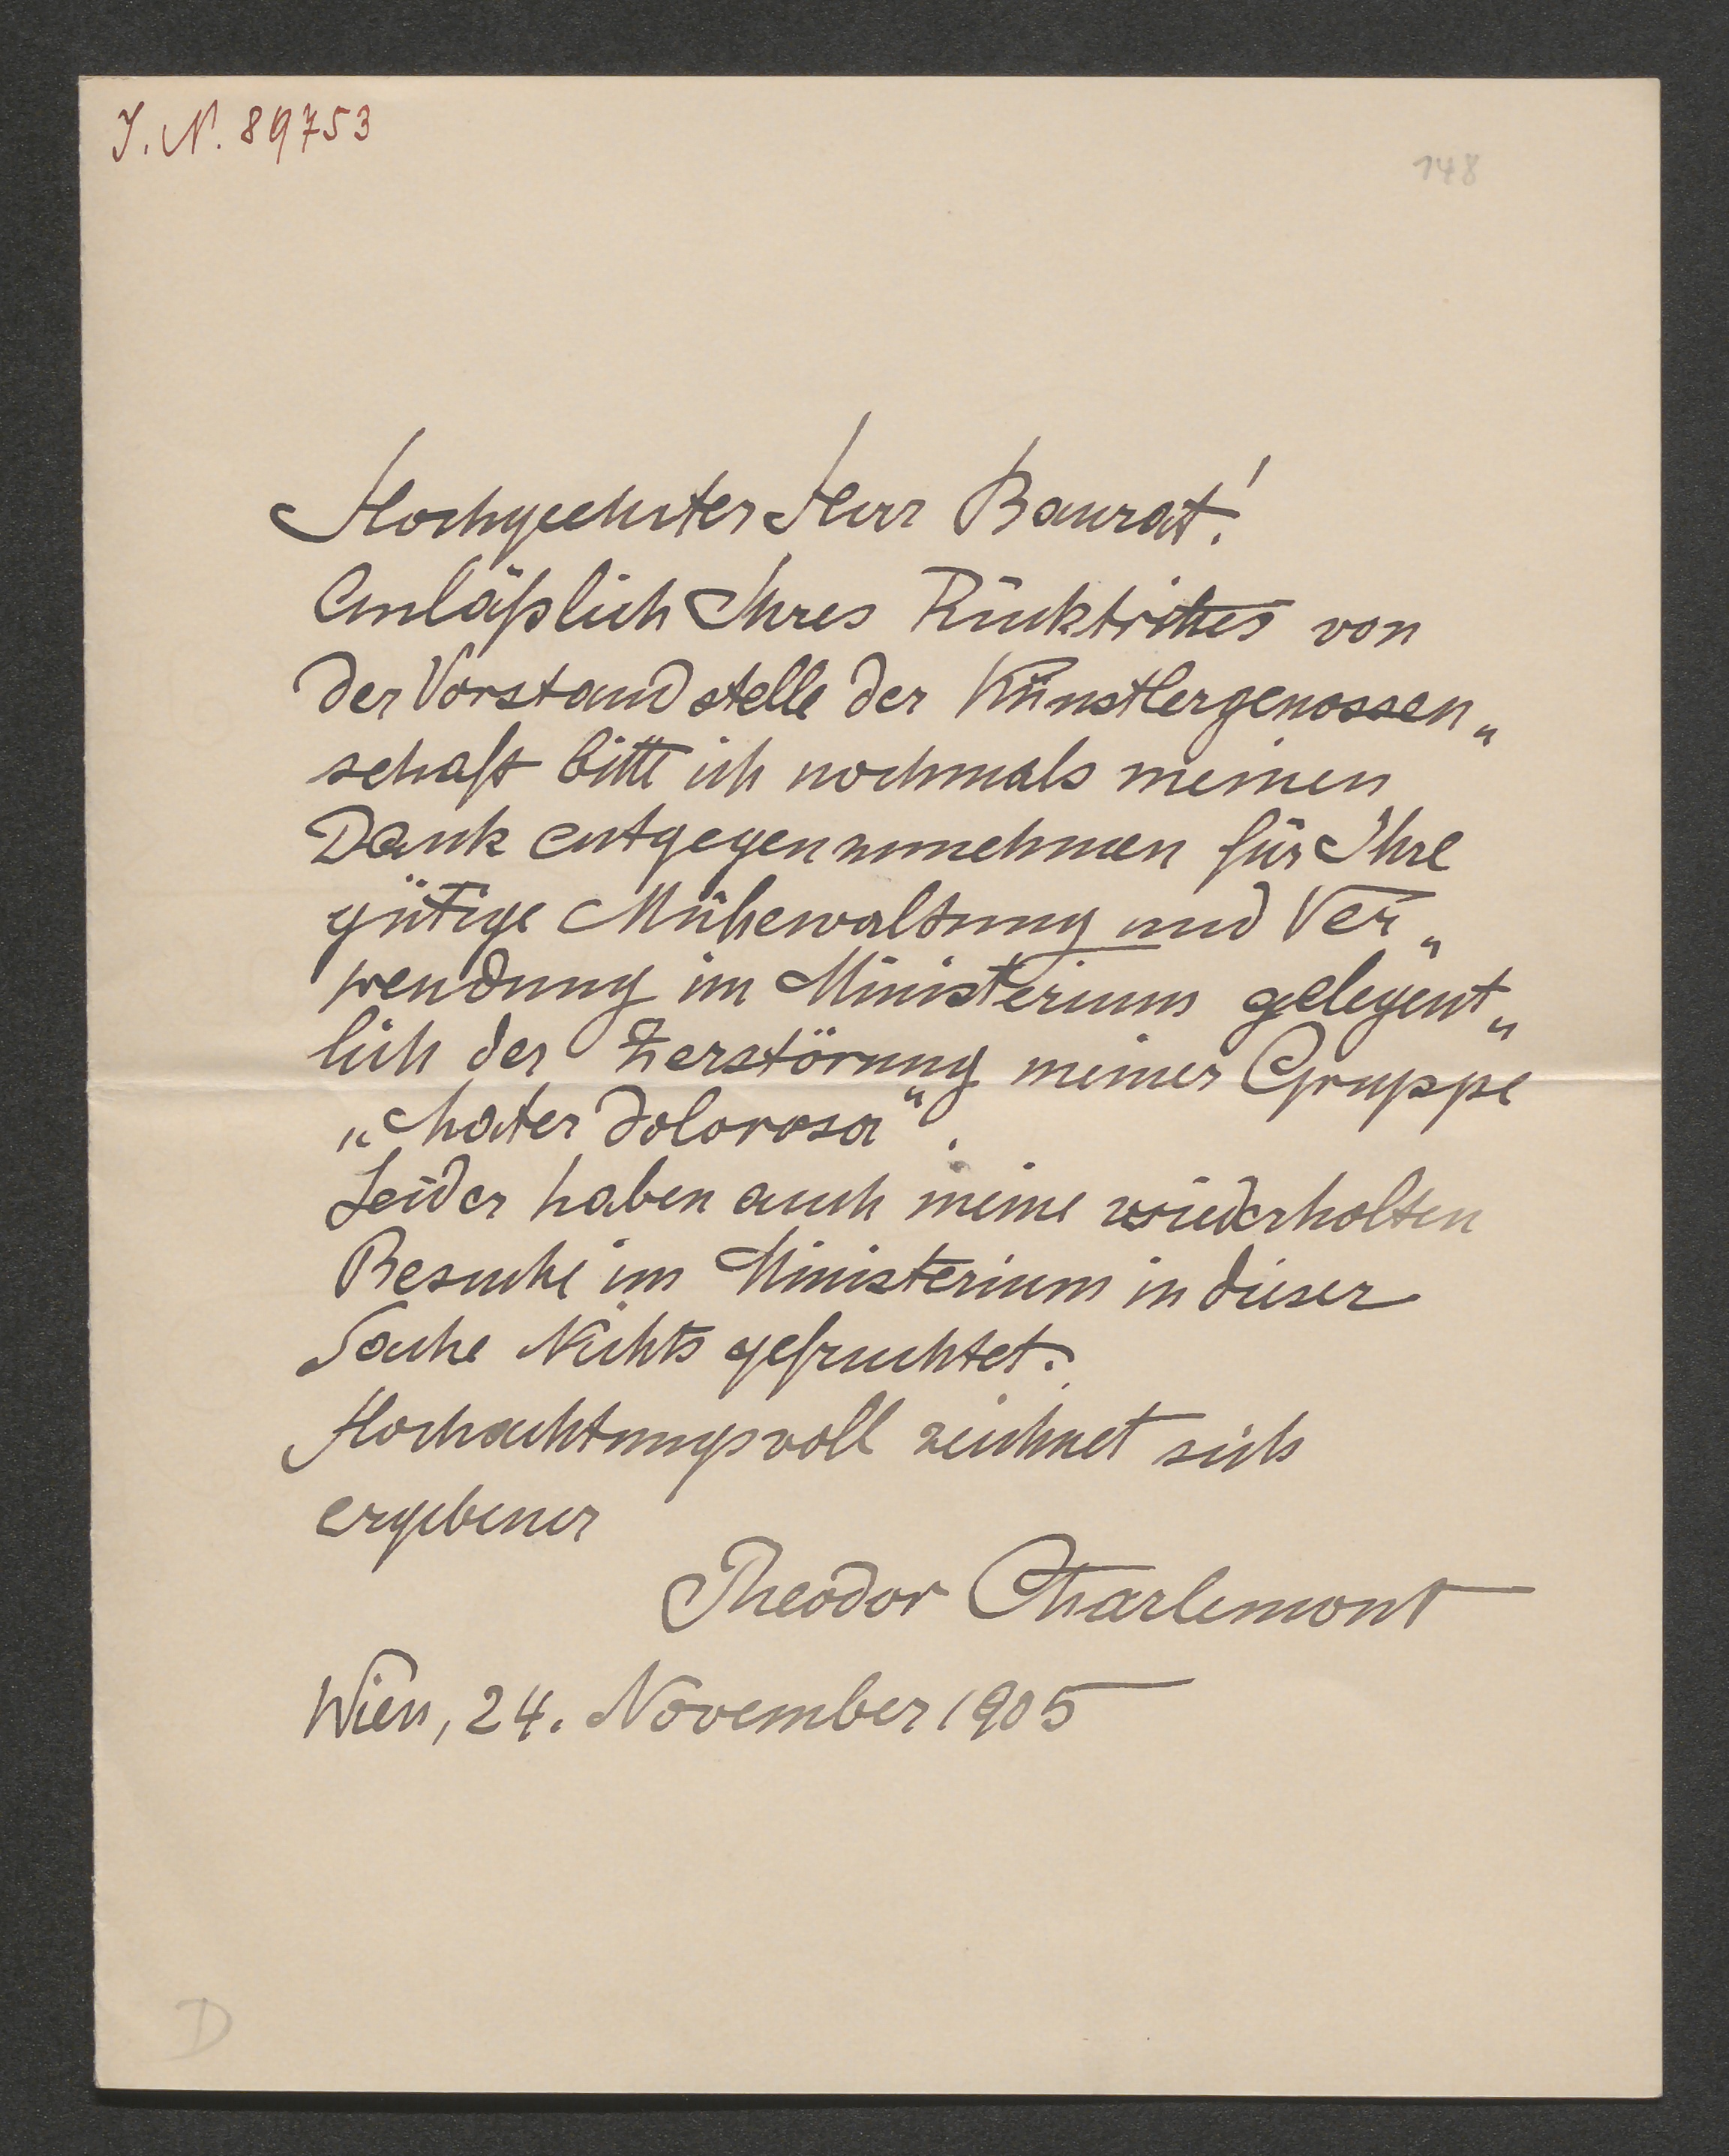 J. N. 89753
148
Hochgeehrter Herr Baurat!
Anläßlich Ihres Rücktrittes von
der Vorstandstelle der Künstlergenossen„
schaft bitte ich nochmals meinen
Dank entgegenzunehmen für Ihre
gütige Mühewaltung und Ver„
wendung im Ministerium gelegent„
lich der Zerstörung meiner Gruppe
„Mater dolorosa“.
Leider haben auch meine wiederholten
Besuche im Ministerium in dieser
Sache Nichts gefruchtet.
Hochachtungsvoll zeichnet sich
ergebener
Theodor Charlemont
Wien, 24. November 1905
D